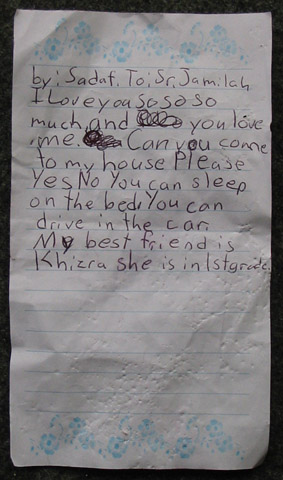 by: Sadaf. To: Sr. Jamilah
I Love you so so so
much, and you love
me. Can you come
to my house Please
Yes No You can sleep
on the bed. You can
drive in the car.
My best friend is
Khizra she is in 1st grade.